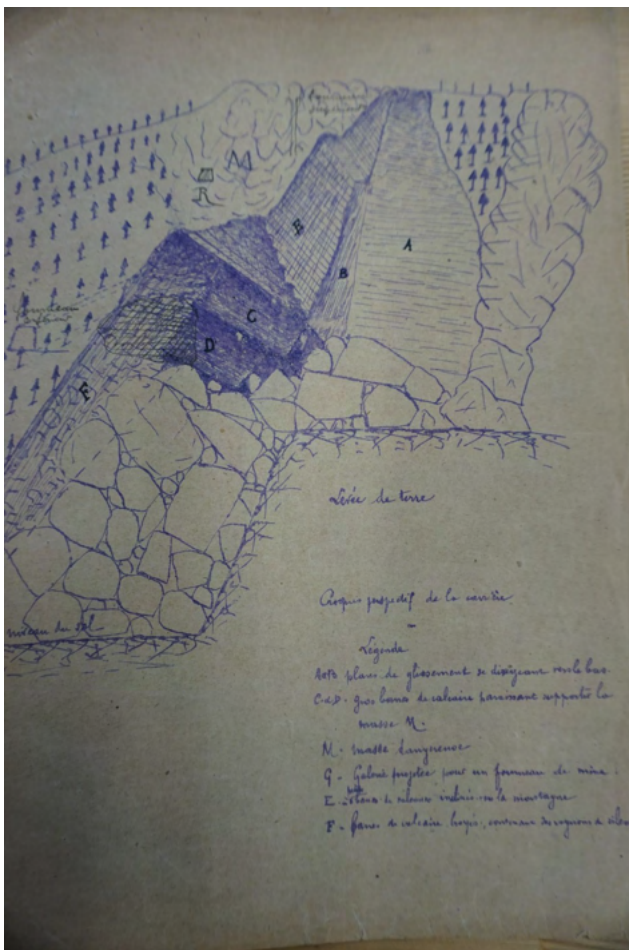 M
R
E
B
A
C
D
F
niveau du sol
Levée de terre
Croquis perspectif de la carrière
Légende
A et B plans de glissement se dirigeant vers le bas
C et D - gros bancs de calcaire paraissant supporter la
masse M.
M - masse dangereuse
G - Galerie projetée pour un fourneau de mine.
E - bancs de calcaire inclinés vers la montagne
F - bancs de calcaire broyés, contenant des rognons de silex